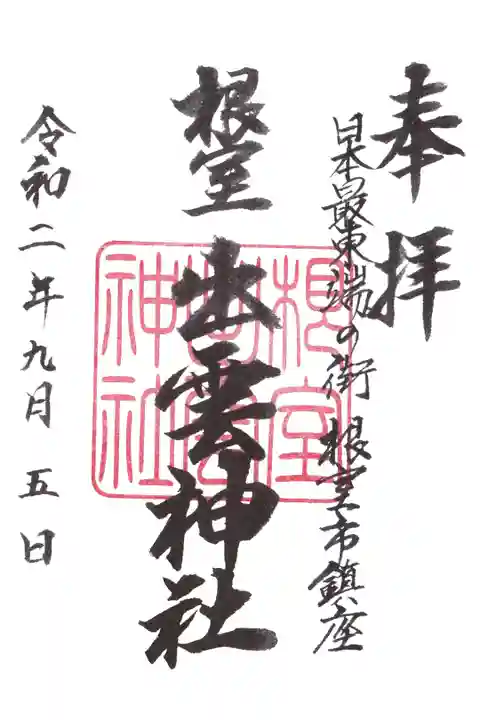 奉拝
日本最東端の街 根室市鎮座
根室
出雲神社
根室
出雲
神社
令和二年九月五日